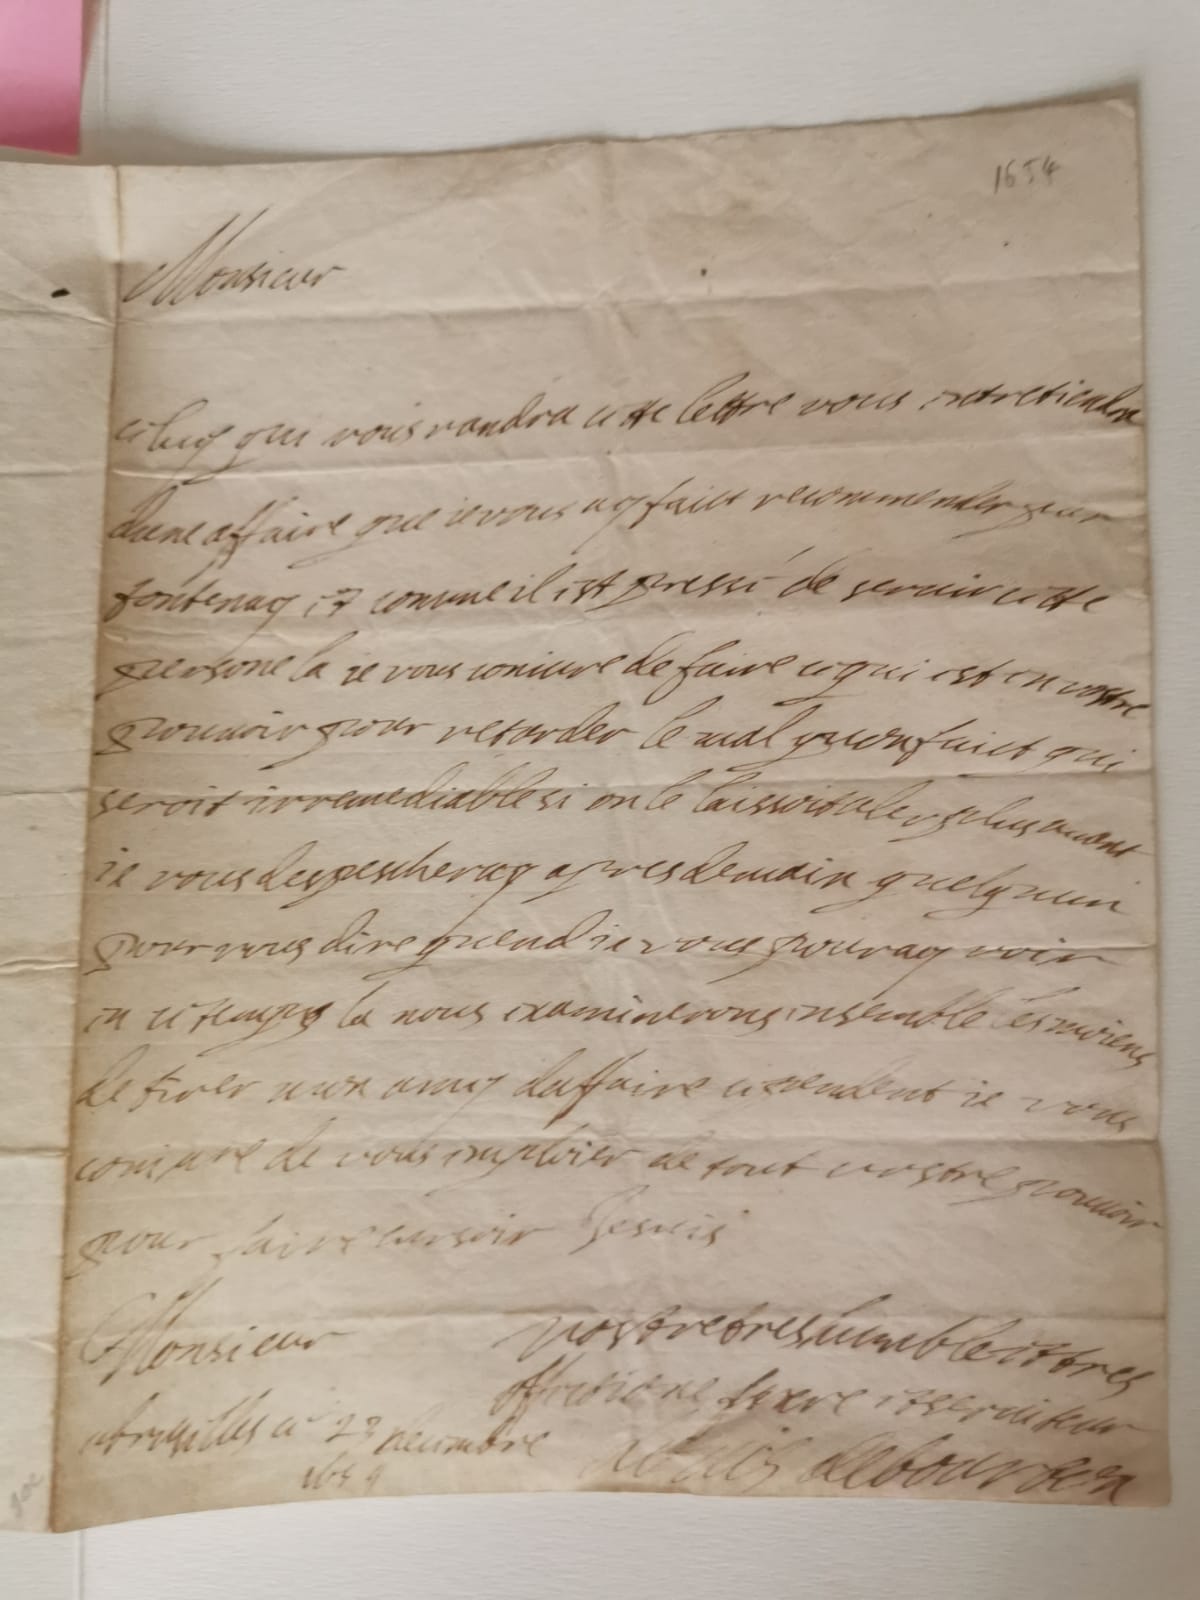 1654
Monsieur
celuy qui vous randra cette lettre vous entretiendra
dune affaire que ie vous ay faict recommender par
fontenay et comme il est pressé de servir cette
persone la ie vous coniure de faire ce qui est en vostre
pouuoir pour retarder le mal quon faict qui
seroit irremediable si on le laissoit aler plus auant
ie vous despescheray apres demain quelquun
pour vous dire quend ie vous pouray voir
en ce temps la nous examinerons ensemble les moiens
de tirer mon amy daffaire cependent ie vous
coniure de vous emploier de tout vostre pouuoir
pour faire surseoir Je suis
Monsieur
vostre tres humble et tres
affectioné et seruiteur
a bruxelles ce 23 decembre
1654
Louis de bourbon